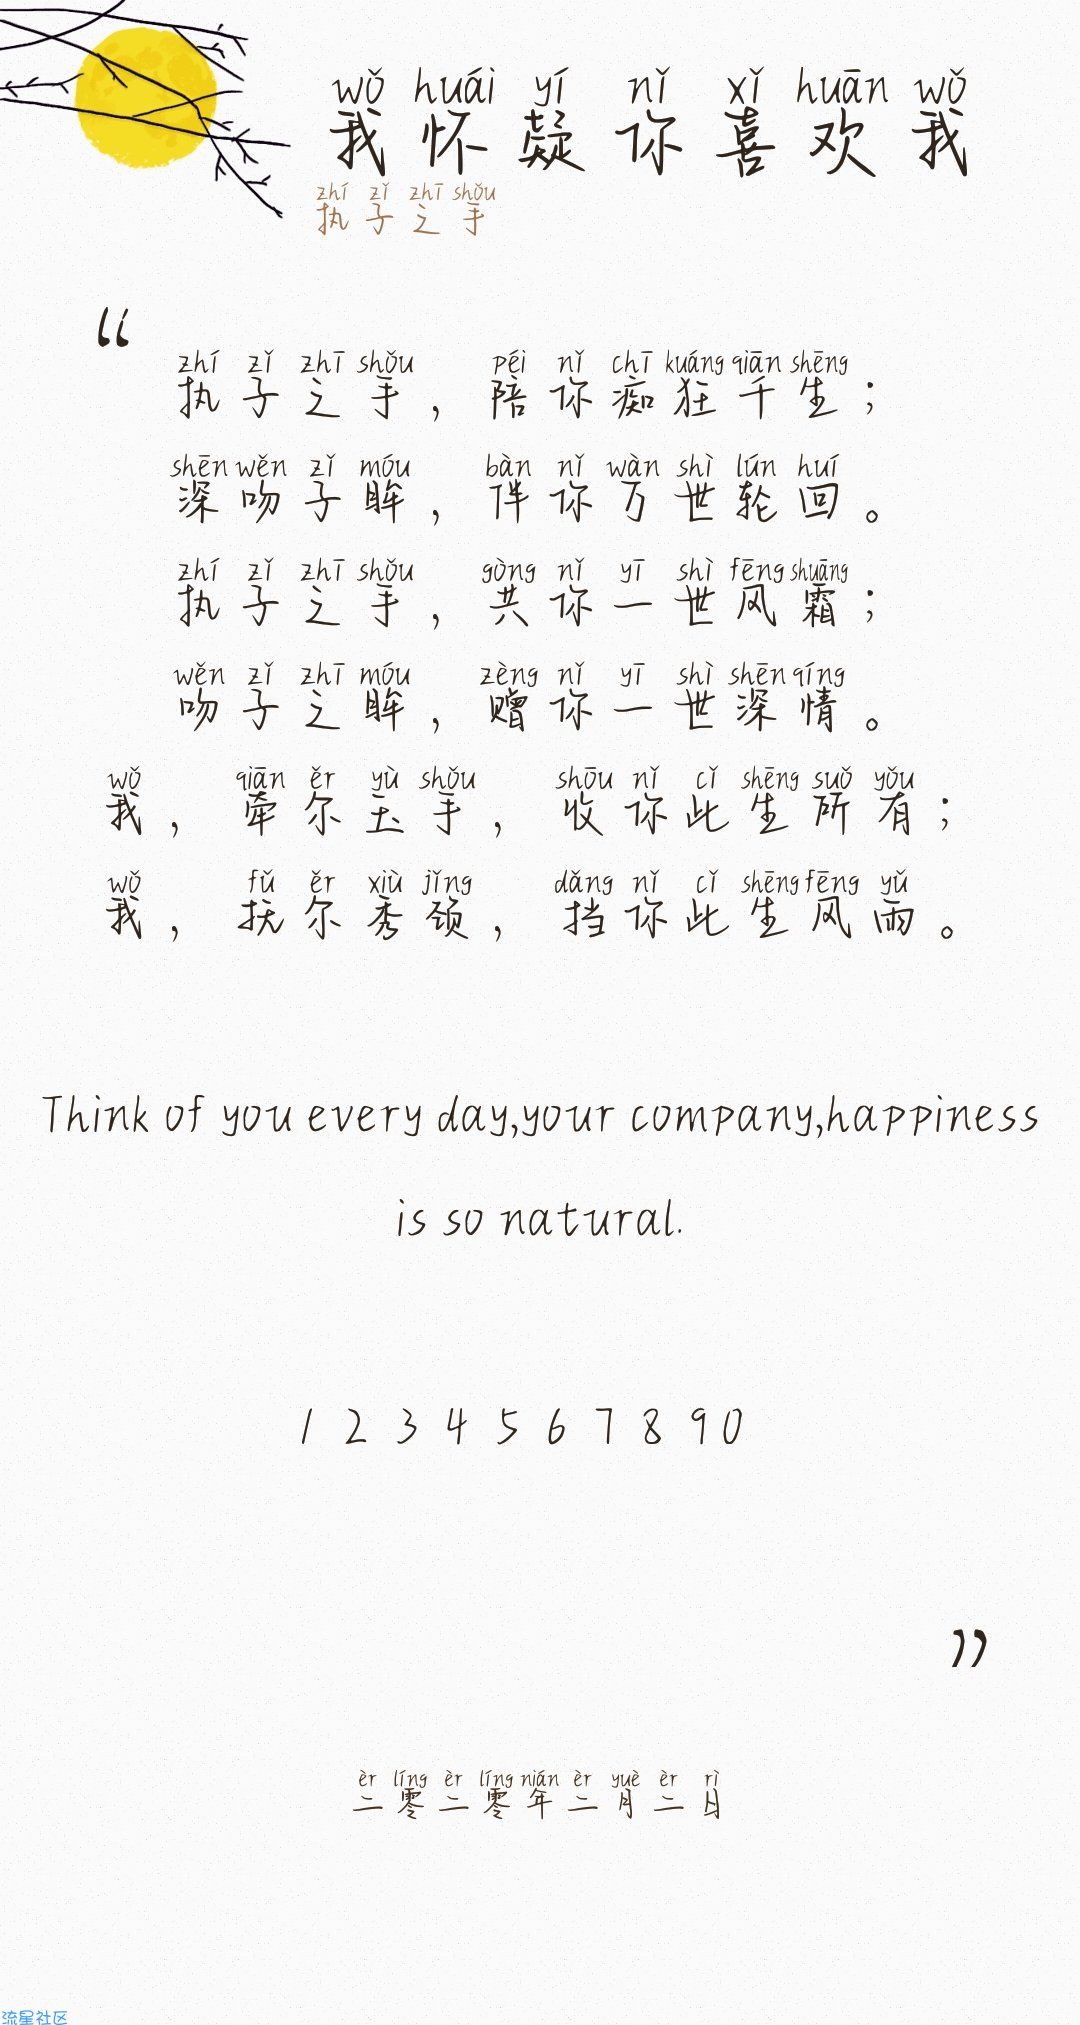 wǒ huái yí nǐ xǐ huān wǒ
我怀疑你喜欢我
zhí zǐ zhī shǒu
执子之手
“
zhí zǐ zhī shǒu péi nǐ chī kuáng qiān shēng
执子之手，陪你痴狂千生；
shēn wěn zǐ móu bàn nǐ wàn shì lún huí
深吻子眸，伴你万世轮回。
zhí zǐ zhī shǒu gòng nǐ yī shì fēng shuāng
执子之手，共你一世风霜；
wěn zǐ zhī móu zèng nǐ yī shì shēn qíng
吻子之眸，赠你一世深情。
wǒ qiān ěr yù shǒu shōu nǐ cǐ shēng suǒ yǒu
我，牵尔玉手，收你此生所有；
wǒ fǔ ěr xiù jǐng dǎng nǐ cǐ shēng fēng yǔ
我，抚尔秀颈，挡你此生风雨。
Think of you every day,your company,happiness
is so natural.
1 2 3 4 5 6 7 8 9 0
”
èr líng èr líng nián èr yuè èr rì
二零二零年二月二日
流星社区